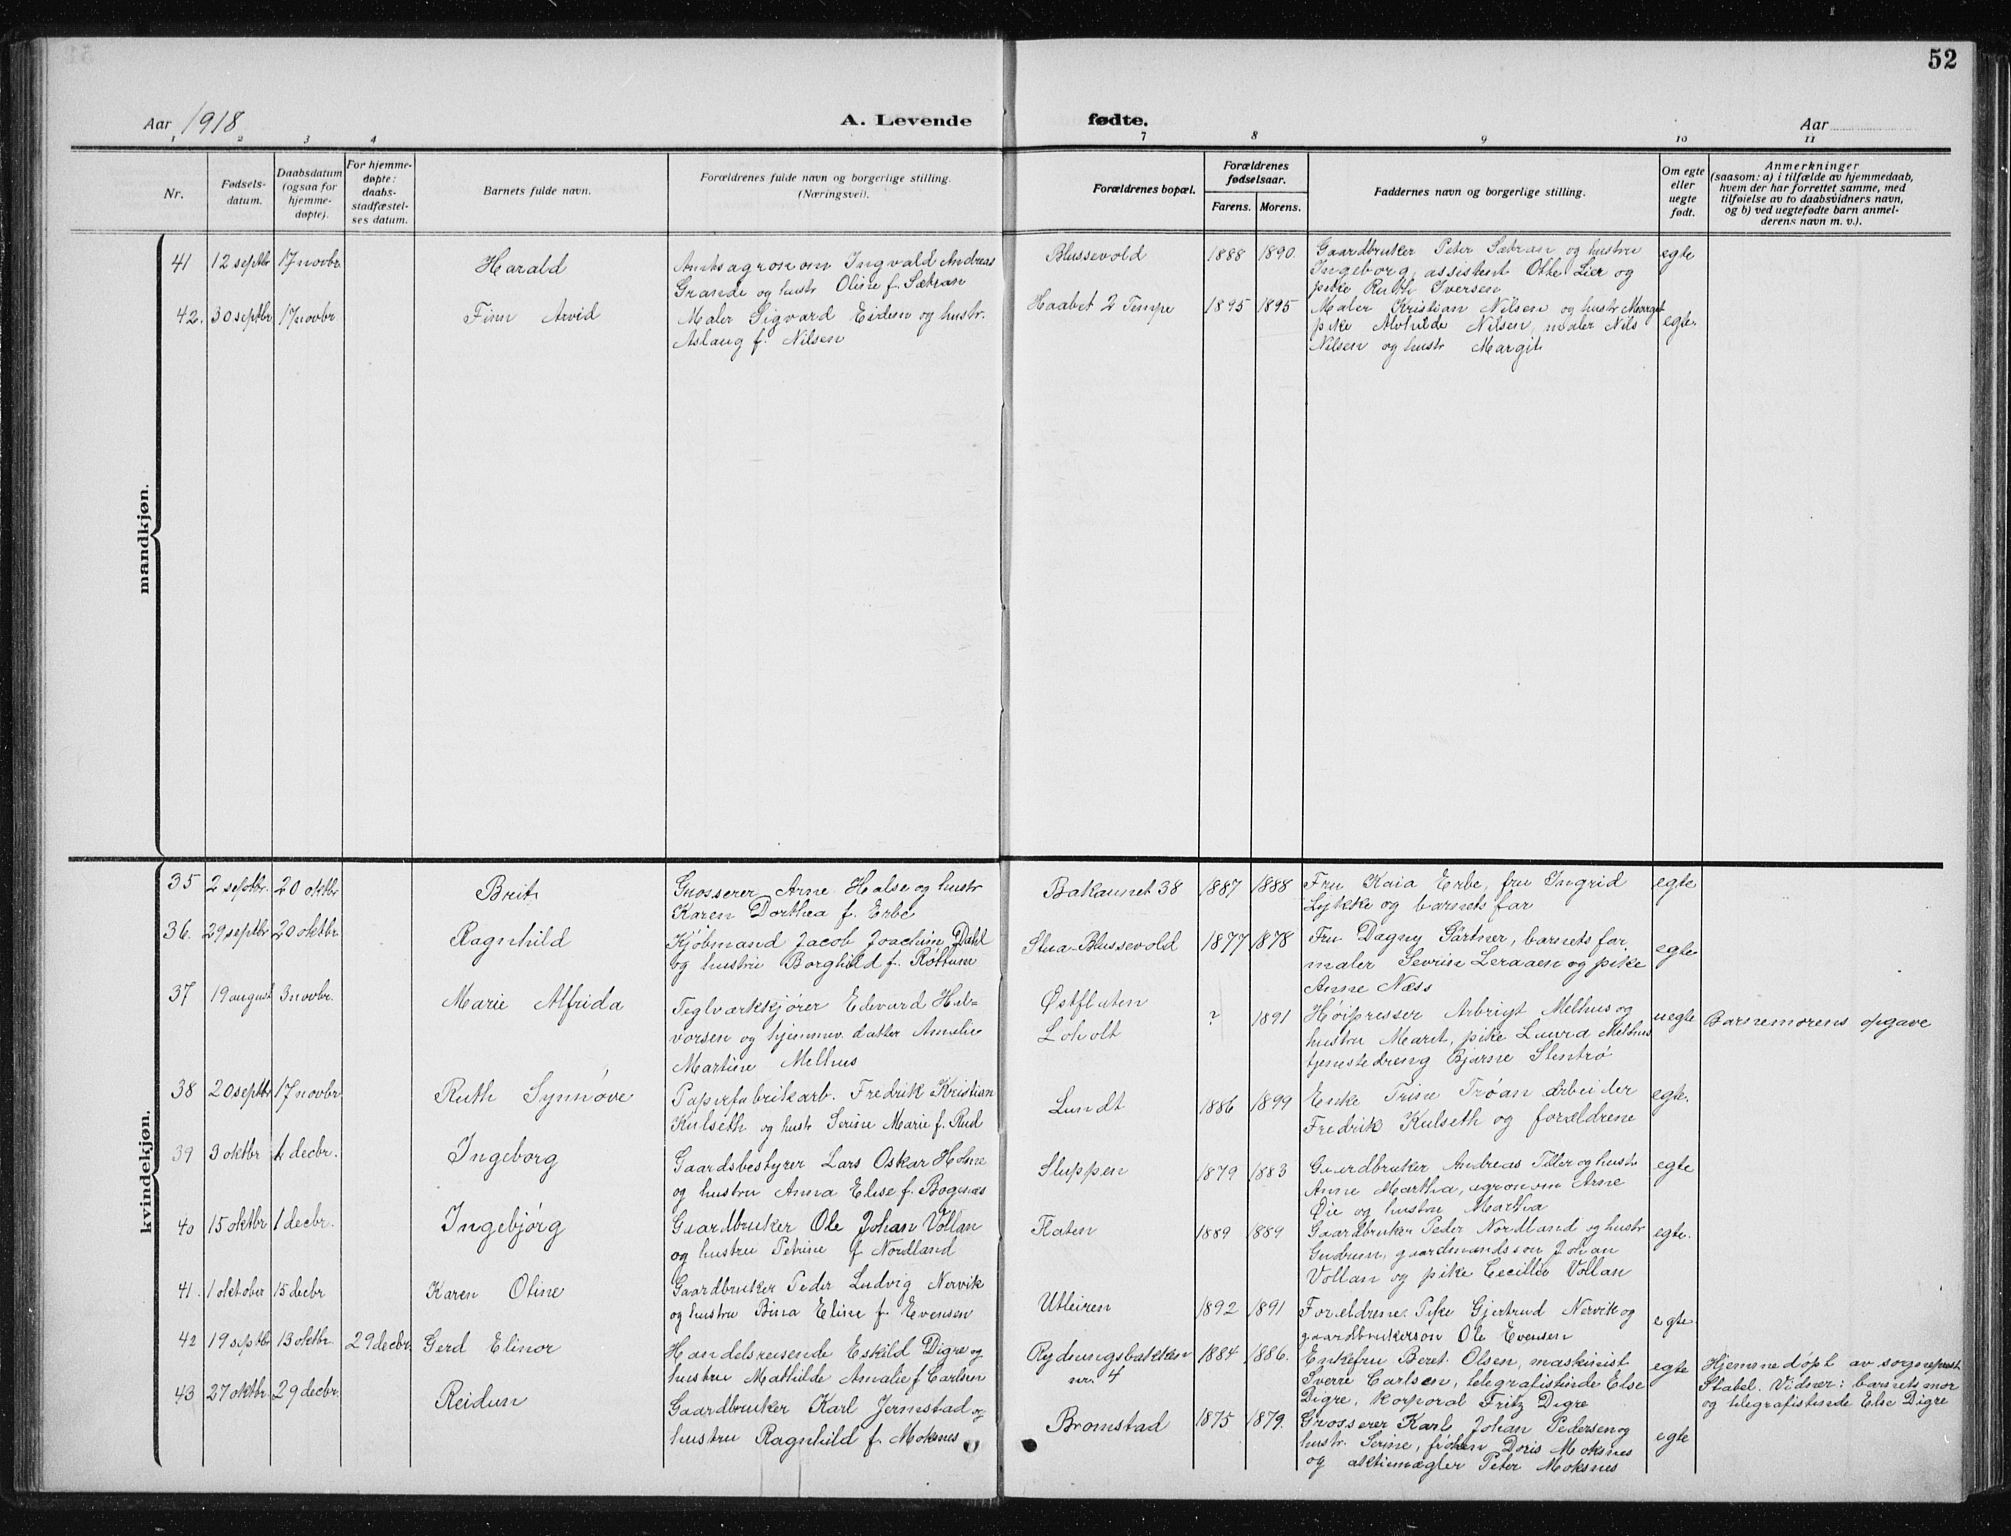 52
Aar 1918
A. Levende
fødte.
Aar
1 2 3 4 7 8 9 10 11
Nr.
Fødsels-
datum.
Daabsdatum
(ogsaa for
hjemme-
døpte).
For hjemme-
døpte:
daabs-
stadfæstel-
ses datum.
Barnets fulde navn.
Forældrenes fulde navn og borgerlige stilling.
(Næringsvei).
Forældrenes bopæl.
Forældrenes
fødselsaar.
Farens. Morens.
Faddernes navn og borgerlige stilling.
Om egte
eller
uegte
født.
Anmerkninger
(saasom: a) i tilfælde av hjemmedaab,
hvem der har forrettet samme, med
tilføielse av to daabsvidners navn,
og b) ved uegtefødte barn anmel-
derens navn m. v.).
mandkjøn.
41 12 septbr 17 novbr. Harald
Amtsagronom Ingvald Andreas
Grande og hustr Oline f. Sætran
Blussevold 1888 1890.
Gaardbruker Peter Sætran og hustru
Ingeborg, assistent Otte Lier og
pike Ruth Iversen
egte
42. 30 septbr 17 novbr Finn Arvid
Maler Sigvard Eidem og hustr.
Aslaug f. Nilsen
Haabet 2 Tempe 1895 1895
Maler Kristian Nilsen og hustr Margit
pike Alvhilde Nilsen, maler Nils
Nilsen og hustr Margit
egte.
kvindekjøn.
35 2 septbr. 20 oktbr Brit
Grosserer Arne Halse og hustr
Karen Dorthea f. Erbe
Bakaunet 38 1887 1888
Fru Kaia Erbe, fru Ingrid
Lykke og barnets far
egte
36. 29 septbr 20 oktbr. Ragnhild
Kjøbmand Jacob Joachim Dahl
og hustru Borghild f. Rottum
Stua-Blussevold 1877 1878
Fru Dagny Gärtner, barnets far,
maler Sevrin Leraaen og pike
Anne Næss
egte
37 19 august 3 novbr. Marie Alfrida
Teglværkkjører Edvard Hal-
vorsen og hjemmv. datter Amalie
Martine Melhus
Østflaten
Loholt
? 1891
Høipresser Arbrigt Melhus og
hustru Maret, pike Laura Melhus
tjenestedreng Bjarne Stentrø
uegte
Barnemorens opgave
38 20 septbr 17 novbr Ruth Synnøve
Papirfabrikarb. Fredrik Kristian
Kulseth og hustr Serine Marie f. Rud
Lundt 1886 1899
Enke Trine Trøan arbeider
Fredrik Kulseth og forældrene
egte.
39 3 oktbr 1 decbr. Ingeborg
Gaardsbestyrer Lars Oskar Holme
og hustru Anna Elise f. Bognæs
Sluppen 1879 1883
Gaardbruker Andreas Tiller og hustr
Anne Martha, agronom Arne
Øie og hustru Martha
egte
40 15 oktbr 1 decbr. Ingebjørg
Gaardbruker Ole Johan Vollan
og hustru Petrine f Nordland
Flaten 1889 1889
Gaardbruker Peder Nordland og hustr
Gudrun, gaardmandsson Johan
Vollan og pike Cecilie Vollan
egte.
41. 1 oktober 15 decbr Karen Oline
Gaardbruker Peder Ludvig Nervik
og hustru Bina Eline f. Evensen
Utleiren 1892 1891
Forældrene. Pike Gjertrud Nervik og
gaardbrukerson Ole Evensen
egte.
42 19 septbr 13 oktbr. 29 decbr. Gerd Elinor
Handelsreisende Eskild Digre og
hustru Mathilde Amalie f Carlsen
Rydningsbakken
nr. 4
1884 1886.
Enkefru Beret Olsen, maskinist
Sverre Carlsen, telegrafistinde Else
Digre, korporal Fritz Digre
egte
Hjemmedøpt av sogneprest
Stabel. Vidner: barnets mor
og telegrafistinde Else Digre
43 27 oktbr. 29 decbr. Reidun
Gaardbruker Karl Jermstad og
hustru Ragnhild f. Moksnes
Bromstad 1875 1879.
Grosserer Karl Johan Pedersen og
hustr. Serine, frøken Doris Moksnes
og aktiemægler Peter Moksnes
egte